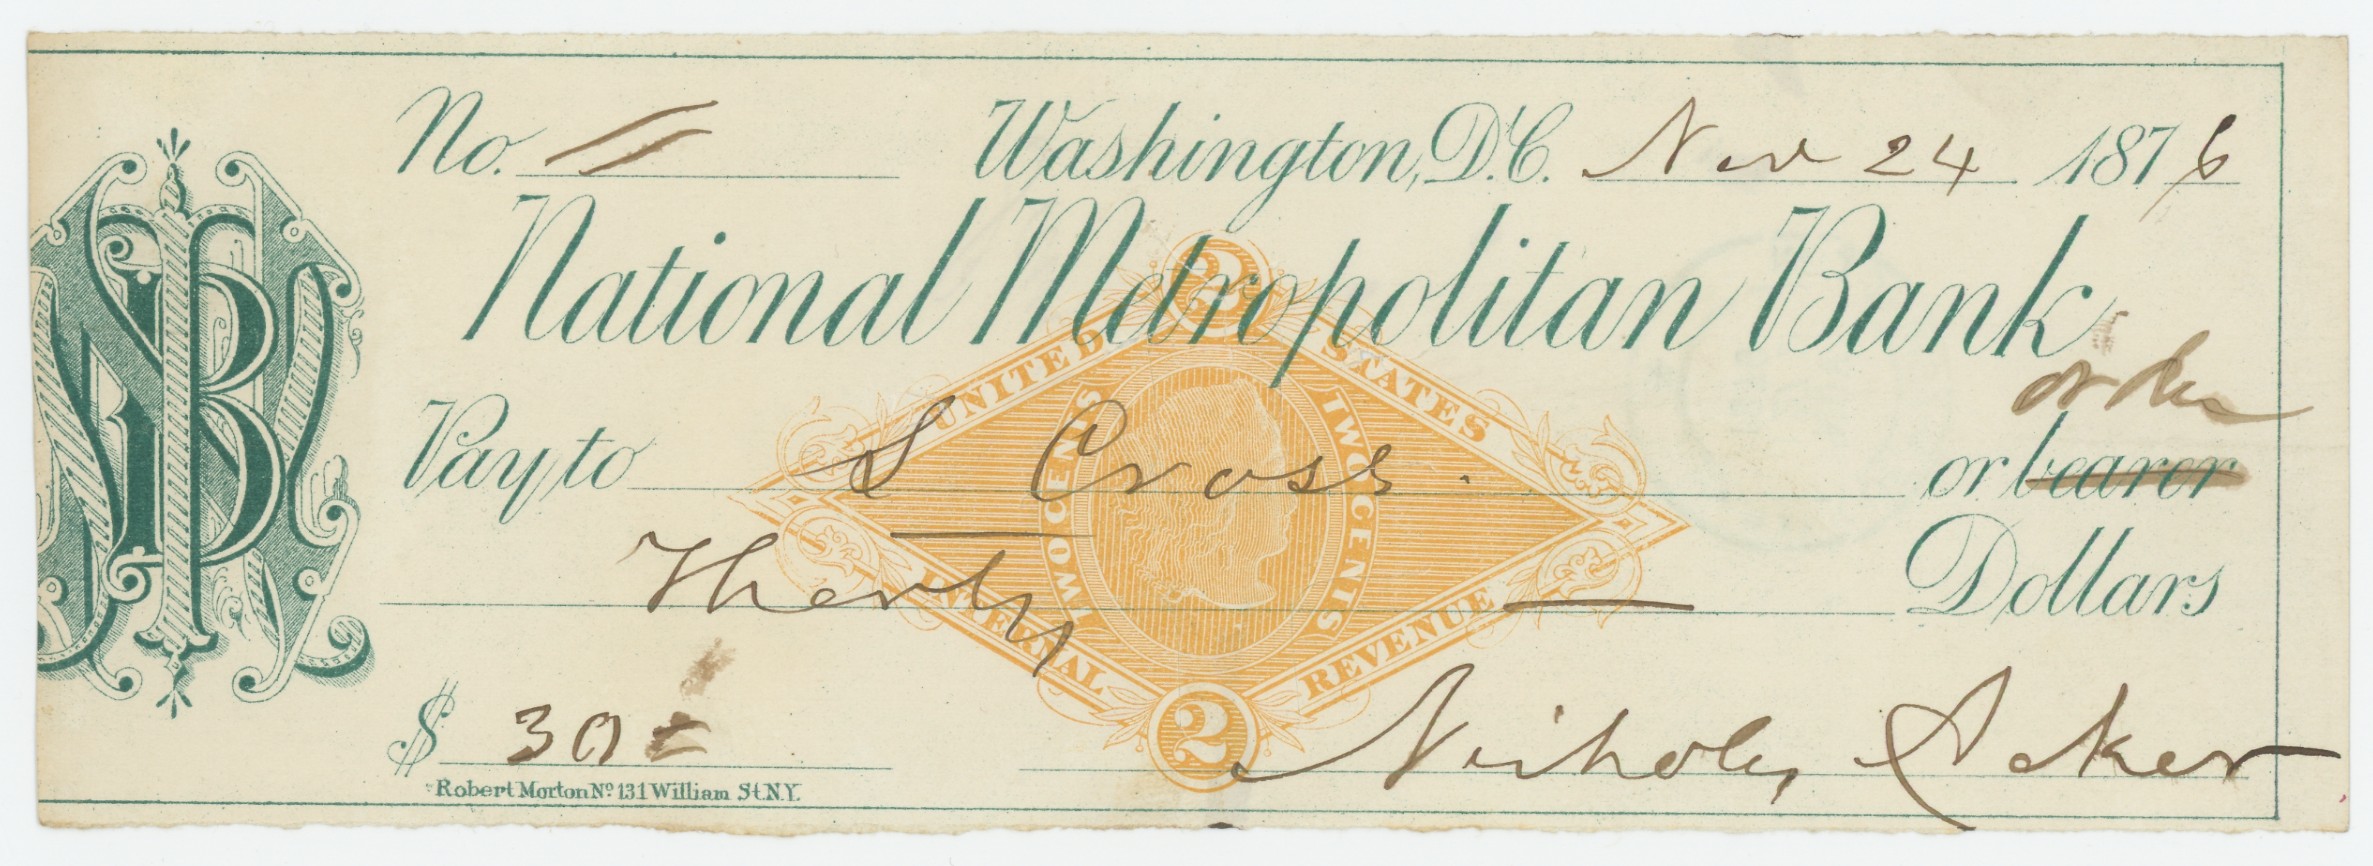 No. 11 Washington, D.C. Nov 24 1876
National Metropolitan Bank
order
Pay to S Cross. or bearer
Therty — Dollars
$ 30
Nicholas Acker
Robert Morton No 131 William St. N.Y.
2
UNITED STATES
TWO CENTS TWO CENTS
INTERNAL REVENUE
2
NMB